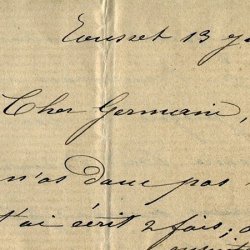 Tousset 13 
Cher Germain,
n'as donc pas
t'ai écrit 2 fois;